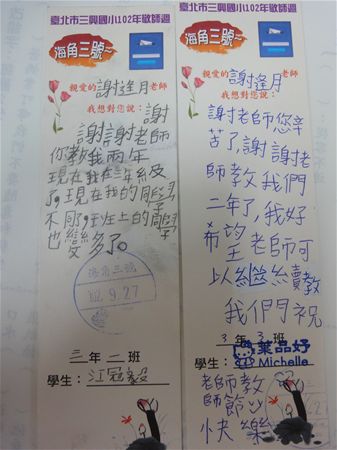 臺北市三興國小102年敬師週
海角三號
親愛的謝逢月老師
我想對您說：
謝
謝謝老師
你教我兩年
現在我在三年級
了。現在我的同學
不同，班上的同學
也變多了。
海角三號
102.9.27
三年二班
學生：江冠毅
臺北市三興國小102年敬師週
海角三號
親愛的謝逢月老師
我想對您說：
謝謝老師您辛
苦了，謝謝老
師教我們
二年了，我好
希望老師可
以繼續賣教
我們祝
3年3班
葉品妤
學生：Michelle
老師教
師節
快樂